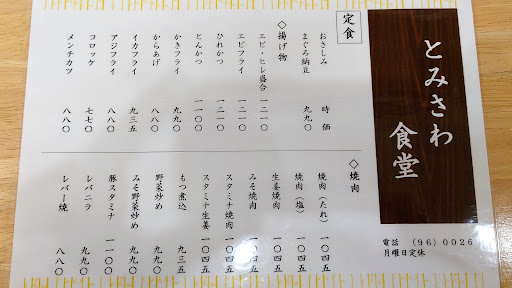 とみさわ
食堂
電話 （96）0026
月曜日定休
定食
おさしみ 時価
まぐろ納豆 九九〇
◇揚げ物
エビ・ヒレ盛合 一二一〇
エビフライ 一二一〇
ひれかつ 一二一〇
とんかつ 一一〇〇
かきフライ 九九〇
からあげ 八八〇
イカフライ 九三五
アジフライ 八八〇
コロッケ 七七〇
メンチカツ 八八〇
◇焼肉
焼肉（たれ） 一〇四五
焼肉（塩） 一〇四五
生姜焼肉 一〇四五
みそ焼肉 一〇四五
スタミナ焼肉 一〇四五
スタミナ生姜 一〇四五
もつ煮込 九三五
野菜炒め 九三五
みそ野菜炒め 九九〇
豚スタミナ 一一〇〇
レバニラ 九九〇
レバー焼 八八〇